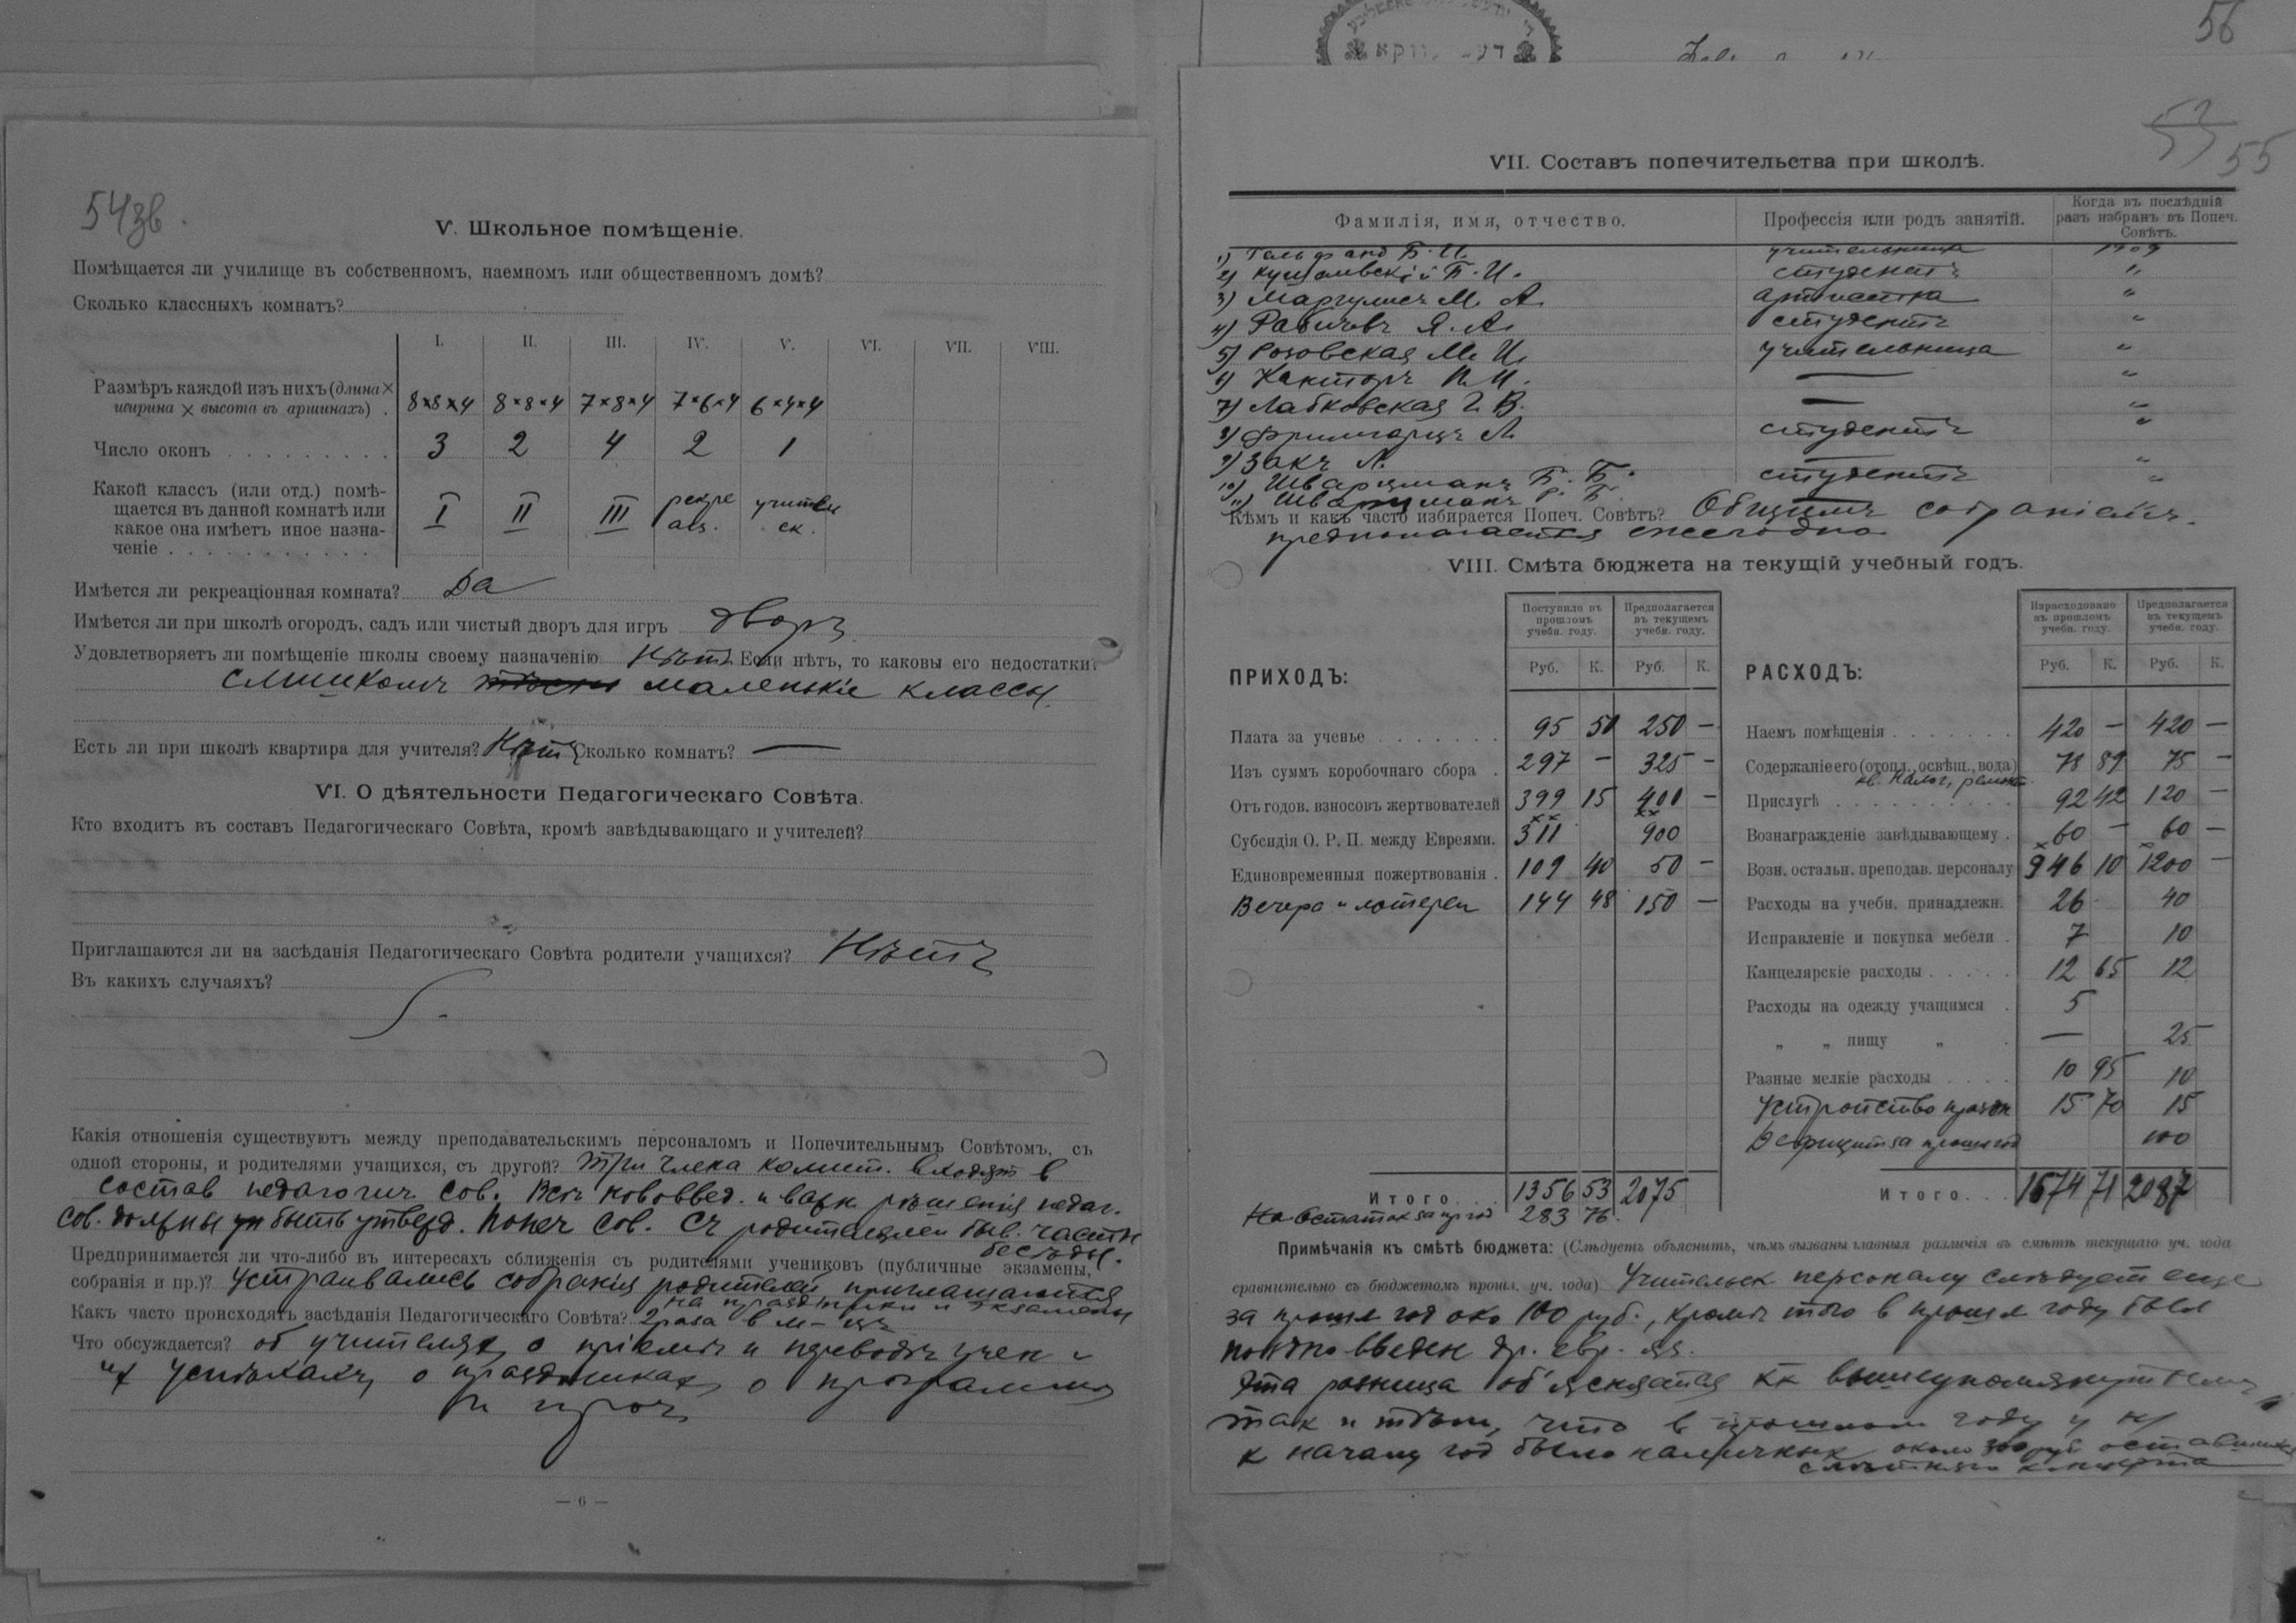 56
54зв.
V. Школьное помѣщеніе.
Помѣщается ли училище въ собственномъ, наемномъ или общественномъ домѣ?
Сколько классныхъ комнатъ?
I. II. III. IV. V. VI. VII. VIII.
Размѣръ каждой изъ нихъ (длина ×
ширина × высота въ аршинахъ) . 8×8×4 8×8×4 7×8×4 7×6×4 6×4×4
Число оконъ . . . . . . . . . 3 2 4 2 1
Какой классъ (или отд.) помѣ-
щается въ данной комнатѣ или
какое она имѣетъ иное назна-
ченіе . . . . . . . . . . . I II III рекре
ац. учительск.
Имѣется ли рекреаціонная комната? Да
Имѣется ли при школѣ огородъ, садъ или чистый дворъ для игръ дворъ
Удовлетворяетъ ли помѣщеніе школы своему назначенію Нѣтъ Если нѣтъ, то каковы его недостатки?
слишкомъ маленькіе классы.
Есть ли при школѣ квартира для учителя? Нѣтъ Сколько комнатъ? —
VI. О дѣятельности Педагогическаго Совѣта.
Кто входитъ въ составъ Педагогическаго Совѣта, кромѣ завѣдывающаго и учителей?
Приглашаются ли на засѣданія Педагогическаго Совѣта родители учащихся? Нѣтъ
Въ какихъ случаяхъ?
Какія отношенія существуютъ между преподавательскимъ персоналомъ и Попечительнымъ Совѣтомъ, съ
одной стороны, и родителями учащихся, съ другой? Три члена комит. входят в
состав педагогич. сов. Всѣ нововвед. и важн. рѣшенія педаг.
сов. должны быть утвержд. попеч. сов. Съ родителями был. часты
бесѣды.
Предпринимается ли что-либо въ интересахъ сближенія съ родителями учениковъ (публичные экзамены,
собранія и пр.)? Устраивались собранія родителей, приглашаются
на праздники и экзамены
Какъ часто происходятъ засѣданія Педагогическаго Совѣта? 2 раза в м-цъ
Что обсуждается? об учителях, о пріемѣ и переводѣ учен. и
их успѣхахъ, о праздниках, о программѣ
и проч.
— 6 —
55
VII. Составъ попечительства при школѣ.
Фамилія, имя, отчество. Профессія или родъ занятій. Когда въ послѣдній
разъ избранъ въ Попеч.
Совѣтъ.
1) Гельфанд Б. И. учительница 1909
2) Б. И. студентъ "
3) Маргулисъ М. А. артистка "
4) Рабичевъ Я. А. студентъ "
5) Розовская М. И. учительница "
6) Канторъ И. — "
7) Лабковская Г. В. — "
8) Л. студентъ "
9) Закъ Л. — "
10) Шварцманъ Б. Б. студентъ "
11) Шварцманъ Р. Б.
Кѣмъ и какъ часто избирается Попеч. Совѣтъ? Общимъ собраніемъ.
предполагается ежегодно
VIII. Смѣта бюджета на текущій учебный годъ.
ПРИХОДЪ: Поступило въ
прошломъ
учебн. году. Предполагается
въ текущемъ
учебн. году.
Руб. К. Руб. К.
Плата за ученье . . . . . . . 95 50 250 —
Изъ суммъ коробочнаго сбора . 297 — 325 —
Отъ годов. взносовъ жертвователей 399 15 400 —
Субсидія О. Р. П. между Евреями. 311 900
Единовременныя пожертвованія . 109 40 50 —
Вечера и лотереи 144 48 150 —
Итого. . . 1356 53 2075
Остаток за пр год 283 76.
РАСХОДЪ: Израсходовано
въ прошломъ
учебн. году. Предполагается
въ текущемъ
учебн. году.
Руб. К. Руб. К.
Наемъ помѣщенія . . . . . . . 420 — 420 —
Содержаніе его (отопл., освѣщ., вода) 78 89 75 —
кв. налог, ремонт.
Прислугѣ . . . . . . . . . . 92 42 120 —
Вознагражденіе завѣдывающему . 60 — 60 —
Возн. остальн. преподав. персоналу 946 10 1200 —
Расходы на учебн. принадлежн. 26 40
Исправленіе и покупка мебели . 7 10
Канцелярскіе расходы . . . . . 12 65 12
Расходы на одежду учащимся . 5
" " пищу " . — 25
Разные мелкіе расходы . . . . 10 95 10
Устройство праздн 15 70 15
Дефицитъ за прошл год 100
Итого. . . 1674 71 2087
Примѣчанія къ смѣтѣ бюджета: (Слѣдуетъ объяснить, чѣмъ вызваны главныя различія въ смѣтѣ текущаго уч. года
сравнительно съ бюджетомъ прошл. уч. года) Учительск персоналу слѣдует еще
за прошл год око 100 руб., кромѣ того в прошл году был
поздно введен др. евр. яз.
Эта разница об'ясняется кк вышеупомянутымъ
так и тѣм, что в прошлом году у н/
к началу год было наличных около 300 руб оставшихся